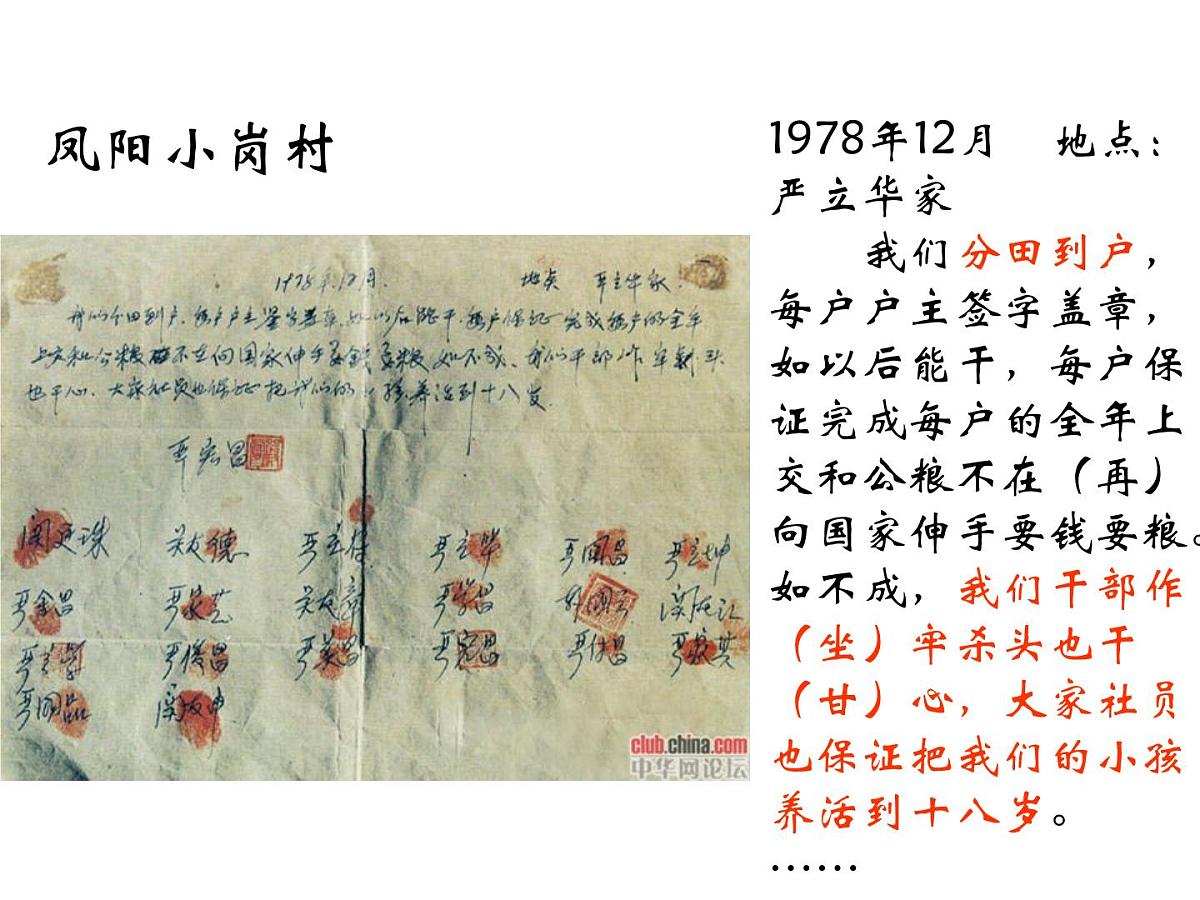 凤阳小岗村
1978年12月 地点：
严立华家
我们分田到户，
每户户主签字盖章，
如以后能干，每户保
证完成每户的全年上
交和公粮不在（再）
向国家伸手要钱要粮。
如不成，我们干部作
（坐）牢杀头也干
（甘）心，大家社员
也保证把我们的小孩
养活到十八岁。
……
1978年12月. 地点 严立华家
我们分田到户，每户户主签字盖章，如以后能干，每户保证完成每户的全年
上交和公粮 不在向国家伸手要钱要粮 如不成，我们干部作牢杀头
也干心，大家社员也保证把我们的小孩养活到十八岁
严宏昌
关友德 严立华 严国昌 严立坤
严金昌 严家芝 关友章
严俊昌 严美昌 严宏昌 严付昌 严家其
严国品
club.china.com
中华网论坛